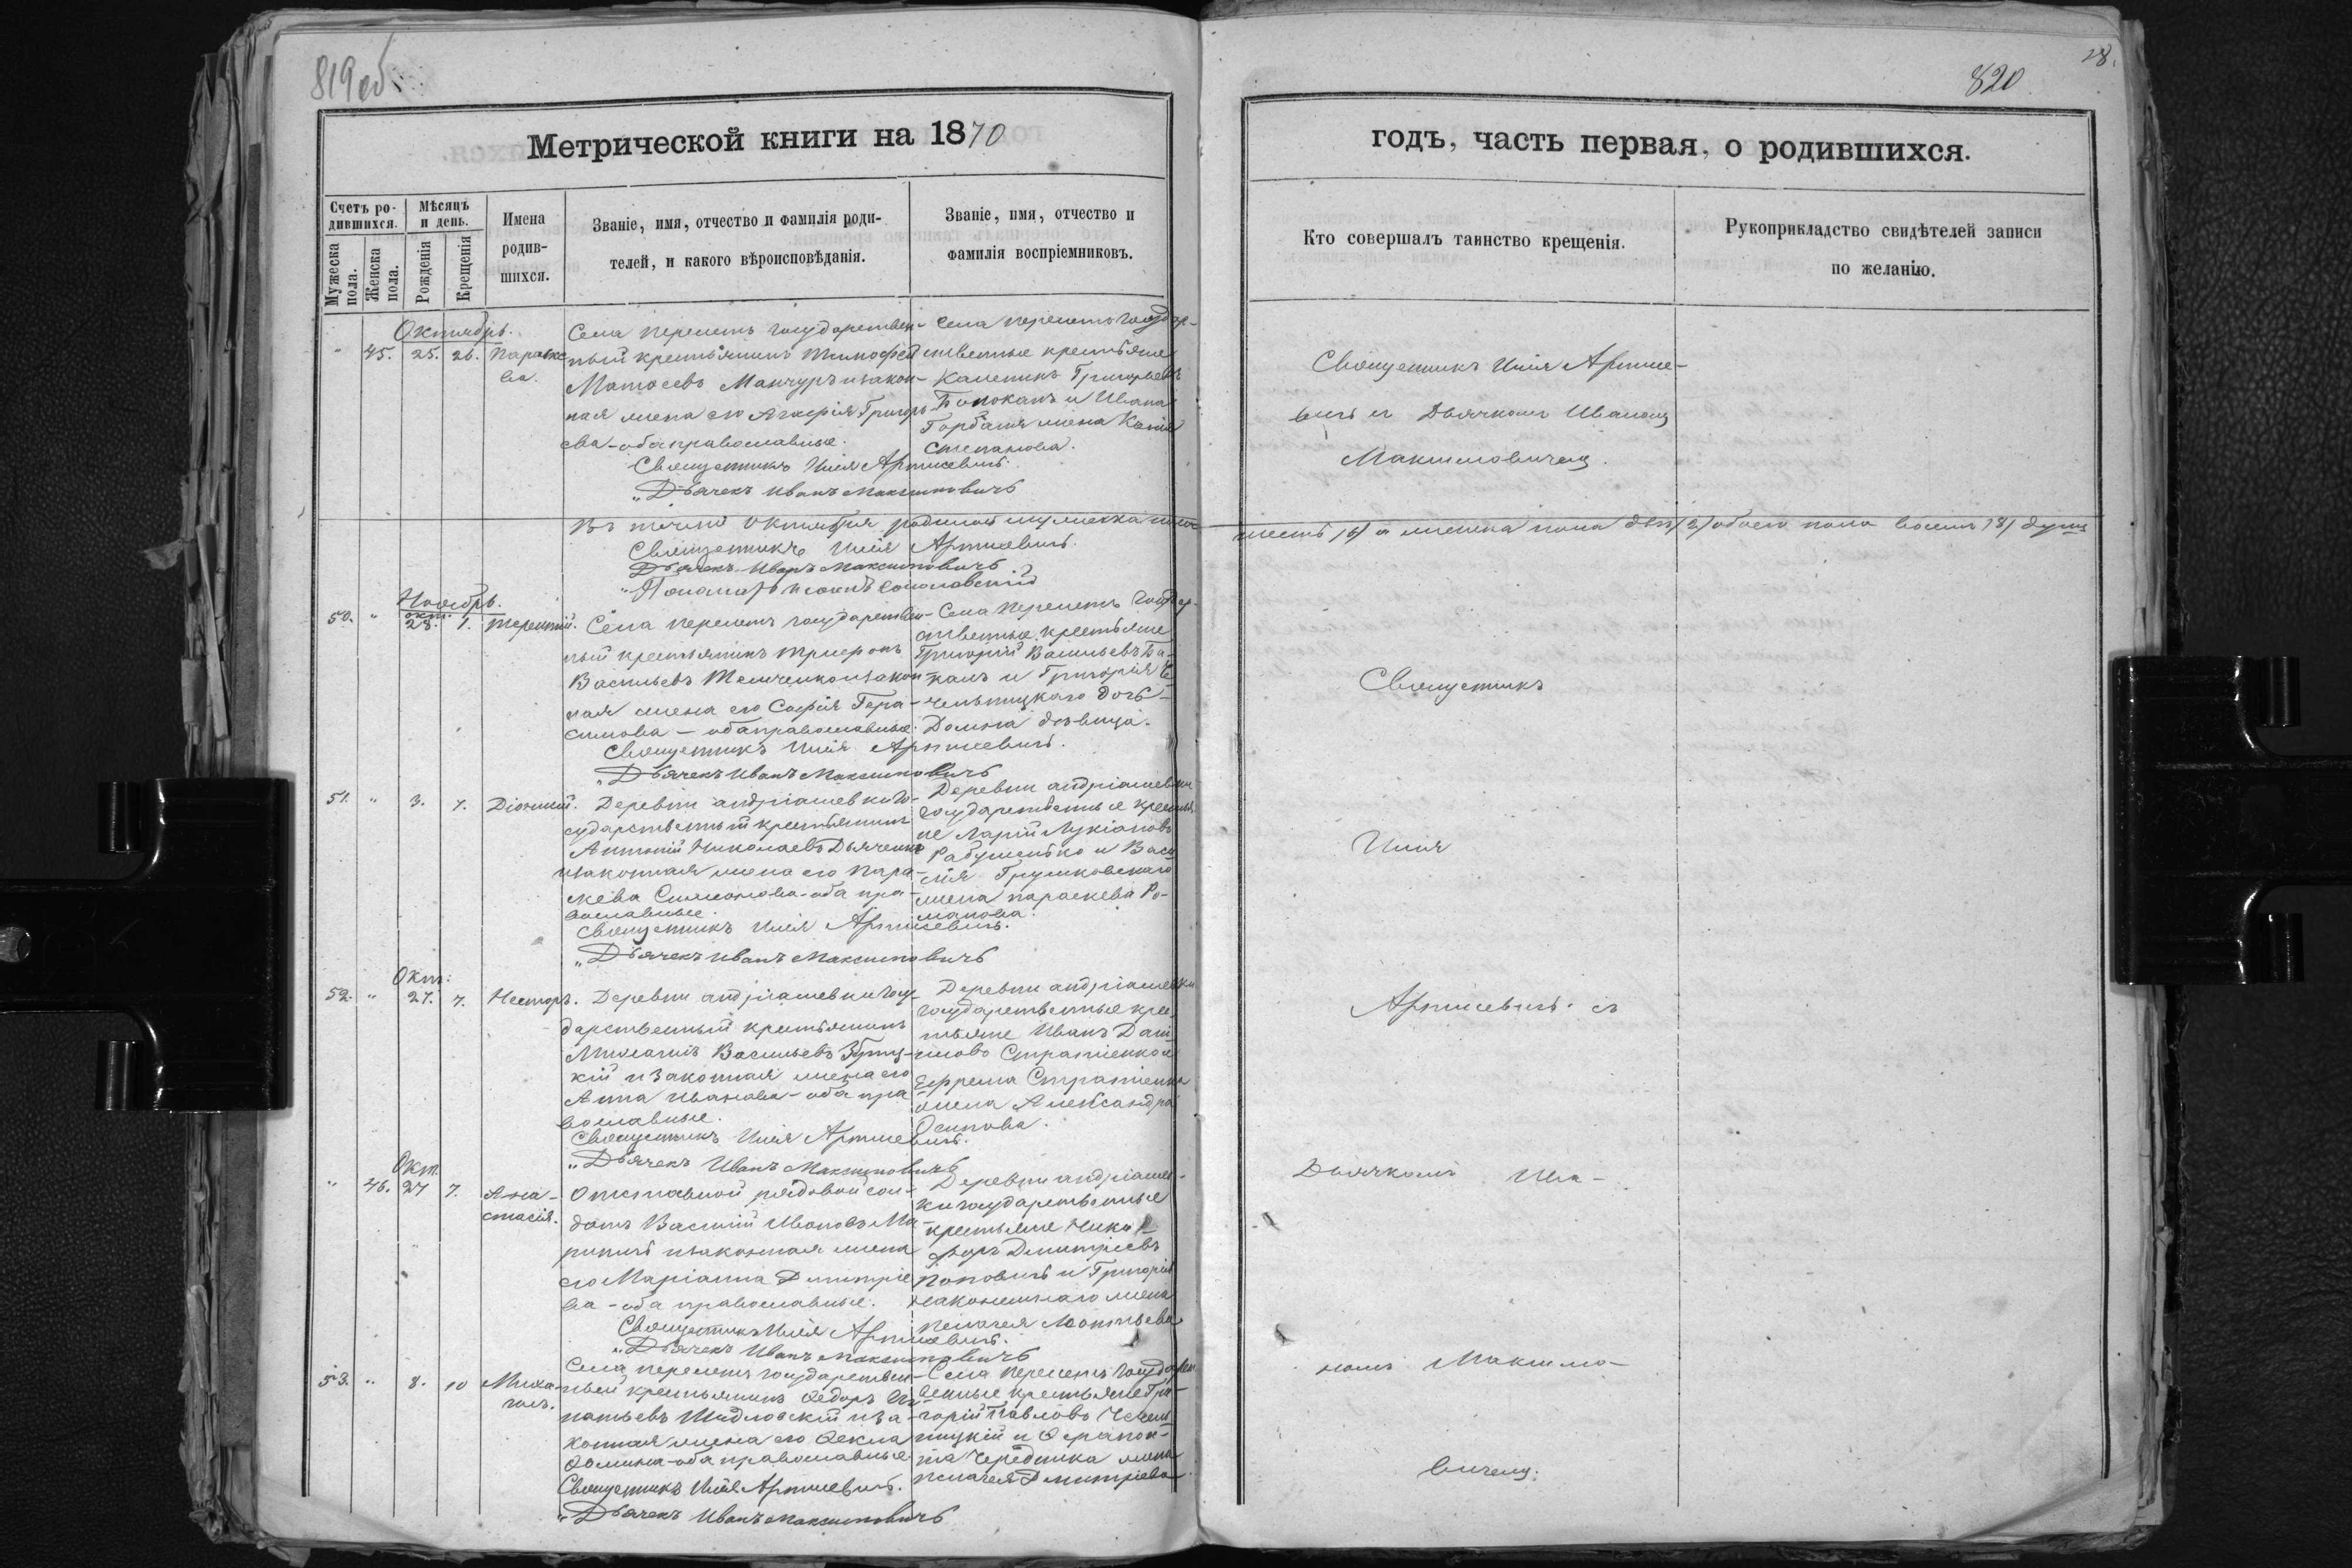 819 об.
Метрической книги на 1870
Счетъ ро-
дившихся.
Мужеска пола.
Женска пола.
Мѣсяцъ
и день.
Рожденія
Крещенія
Имена
родив-
шихся.
Званіе, имя, отчество и фамилія роди-
телей, и какого вѣроисповѣданія.
Званіе, имя, отчество и
фамилія воспріемниковъ.
Октябрь.
" 45. 25. 26. Параске
ва.
Села Перелетъ государствен-
ный крестьянинъ Тимофей
Матѳеевъ Манчуръ и закон-
ная жена его Агафія Григорь
ева - оба православные.
Священникъ Илія
"Дьячекъ Иванъ Максимовичъ
Села Перелетъ государ-
ственные крестьяне
Григорьевъ
и Ивана
жена
Степанова.
Въ октября родилось мужеска пола
Священникъ Илія
Дьячекъ Иванъ Максимовичъ
Пономарь
Ноябрь.
окт.
50. " 28. 1. Терентій.
Села Перелетъ государствен-
ный крестьянинъ Трифонъ
Васильевъ и закон
ная жена его Софія Гера-
симова - оба православные.
Священникъ Илія
"Дьячекъ Иванъ Максимовичъ
Села Перелетъ государ-
ственные крестьяне
Григорій Васильевъ Ба-
и Григорія Че-
чельницкаго дочь
Домна дѣвица.
51. " 3. 7. Діонисій.
Деревни Андріяшевки го-
сударственный крестьянинъ
Антоній Николаевъ Дьяченко
и законная жена его Пара-
скева Симеонова - оба пра-
вославные.
Священникъ Илія
"Дьячекъ Иванъ Максимовичъ
Деревни Андріяшевки
государственные крестья-
не Ларій Лукіановъ
и Васи
лія Грушковскаго
жена Параскева Ро-
манова.
Окт:
52. " 27. 7. Несторъ.
Деревни Андріяшевки госу-
дарственный крестьянинъ
Михаилъ Васильевъ
кій и законная жена его
Анна Иванова - оба пра
вославные.
Священникъ Илія
"Дьячекъ Иванъ Максимовичъ
Деревни Андріяшевки
государственные крес-
тьяне Иванъ Дани-
иловъ Стратіенко и
Ефрема Стратіенка
жена Александра
Осипова.
Окт.
" 46. 27 7. Ана-
стасія.
Отставной рядовой сол-
датъ Василій Ивановъ Ма-
и законная жена
его Маріанна Димитріе
ва - оба православные.
Священникъ Илія
"Дьячекъ Иванъ Максимовичъ
Деревни Андріяшев-
ки государственные
крестьяне Ники-
форъ Димитріевъ
Поповичъ и Григорія
Наконешнаго жена
Пелагея Леонтьева
53. " 8. 10 Миха-
илъ.
Села Перелетъ государствен-
ный крестьянинъ Ѳедоръ Иг-
натьевъ Шидловскій и за-
конная жена его Ѳекла
Ѳомина - оба православные
Священникъ Илія
"Дьячекъ Иванъ Максимовичъ
Села Перелетъ государст
венные крестьяне Гри-
горій Павловъ Чечель
ницкій и Ѳерапон-
та Чередника жена
Пелагея Димитріева.
28.
820
годъ, часть первая, о родившихся.
Кто совершалъ таинство крещенія.
Рукоприкладство свидѣтелей записи
по желанію.
Священникъ Илія
съ Дьячкомъ Иваномъ
Максимовичемъ.
шесть (6) а женска пола два (2) обоего пола восемь (8) душъ
Священникъ
Илія
съ
Дьячкомъ Ива-
номъ Максимо-
вичемъ.